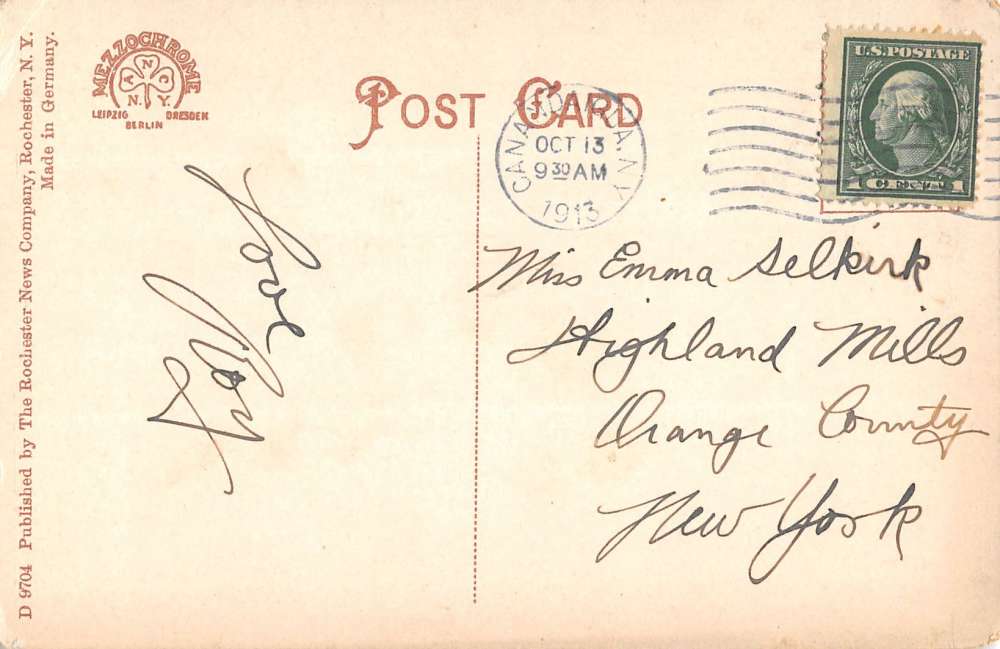 D 9704 Published by The Rochester News Company, Rochester, N. Y.
Made in Germany.
MEZZOCHROME
A N C
N. Y.
LEIPZIG DRESDEN
BERLIN
POST CARD
CANANDAIGUA N.Y.
OCT 13
9 30 AM
1913
U.S. POSTAGE
1 CENT 1
Love
Roy
Miss Emma Selkirk
Highland Mills
Orange County
New York